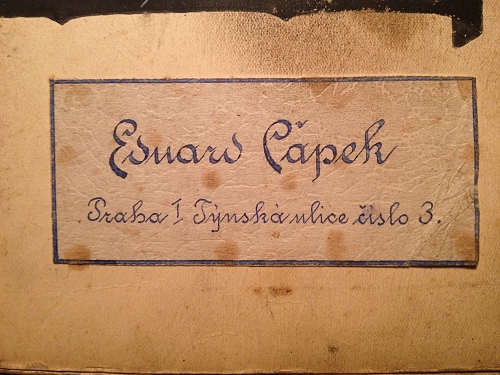 Eduard Čápek
Praha I Týnská ulice číslo 3.